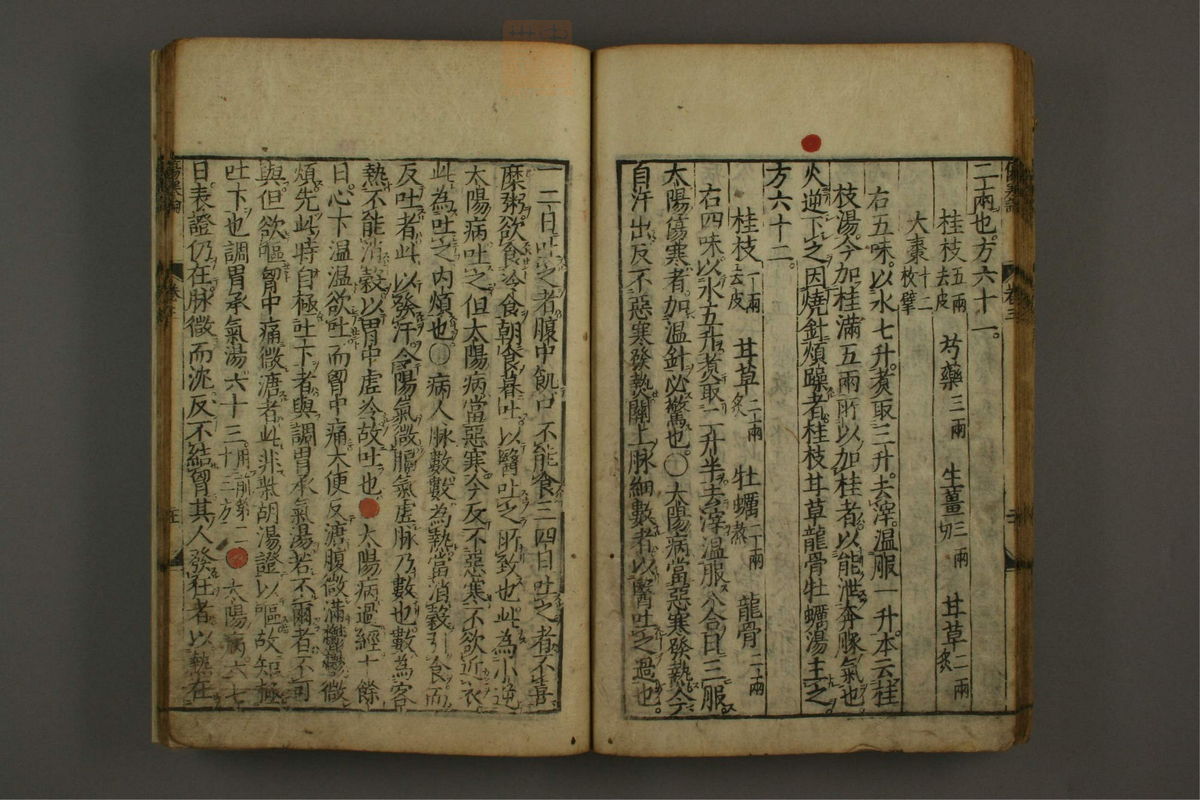 二兩也方六十一。
桂枝五兩去皮 芍藥三兩 生薑三兩切 甘草二兩炙
大棗十二枚擘
右五味。以水七升。煮取三升。去滓。溫服一升。本云桂
枝湯今加桂滿五兩所以加桂者以能泄奔豚氣也
火逆下之。因燒針煩躁者桂枝甘草龍骨牡蠣湯主之。
方六十二。
桂枝一兩去皮 甘草二兩炙 牡蠣二兩熬 龍骨二兩
右四味以水五升煮取二升半去滓溫服八合日三服
太陽傷寒者加溫針必驚也〇太陽病當惡寒發熱今
自汗出反不惡寒發熱關上脉細數者以醫吐之過也。
一二日吐之者腹中飢口不能食三四日吐之者不喜
糜粥欲食冷食朝食暮吐以醫吐之所致也此為小逆
太陽病吐之但太陽病當惡寒今反不惡寒不欲近衣
此為吐之內煩也〇病人脉數數為熱當消穀引食而
反吐者此以發汗令陽氣微膈氣虛脉乃數也數為客
熱不能消穀以胃中虛冷故吐也 太陽病過經十餘
日心下溫溫欲吐而胷中痛大便反溏腹微滿鬱鬱微
煩先此時自極吐下者與調胃承氣湯若不爾者不可
與但欲嘔胷中痛微溏者此非柴胡湯證以嘔故知極
吐下也調胃承氣湯六十三。用前第三十三方 太陽病六七
日表證仍在脉微而沈反不結胷其人發狂者以熱在